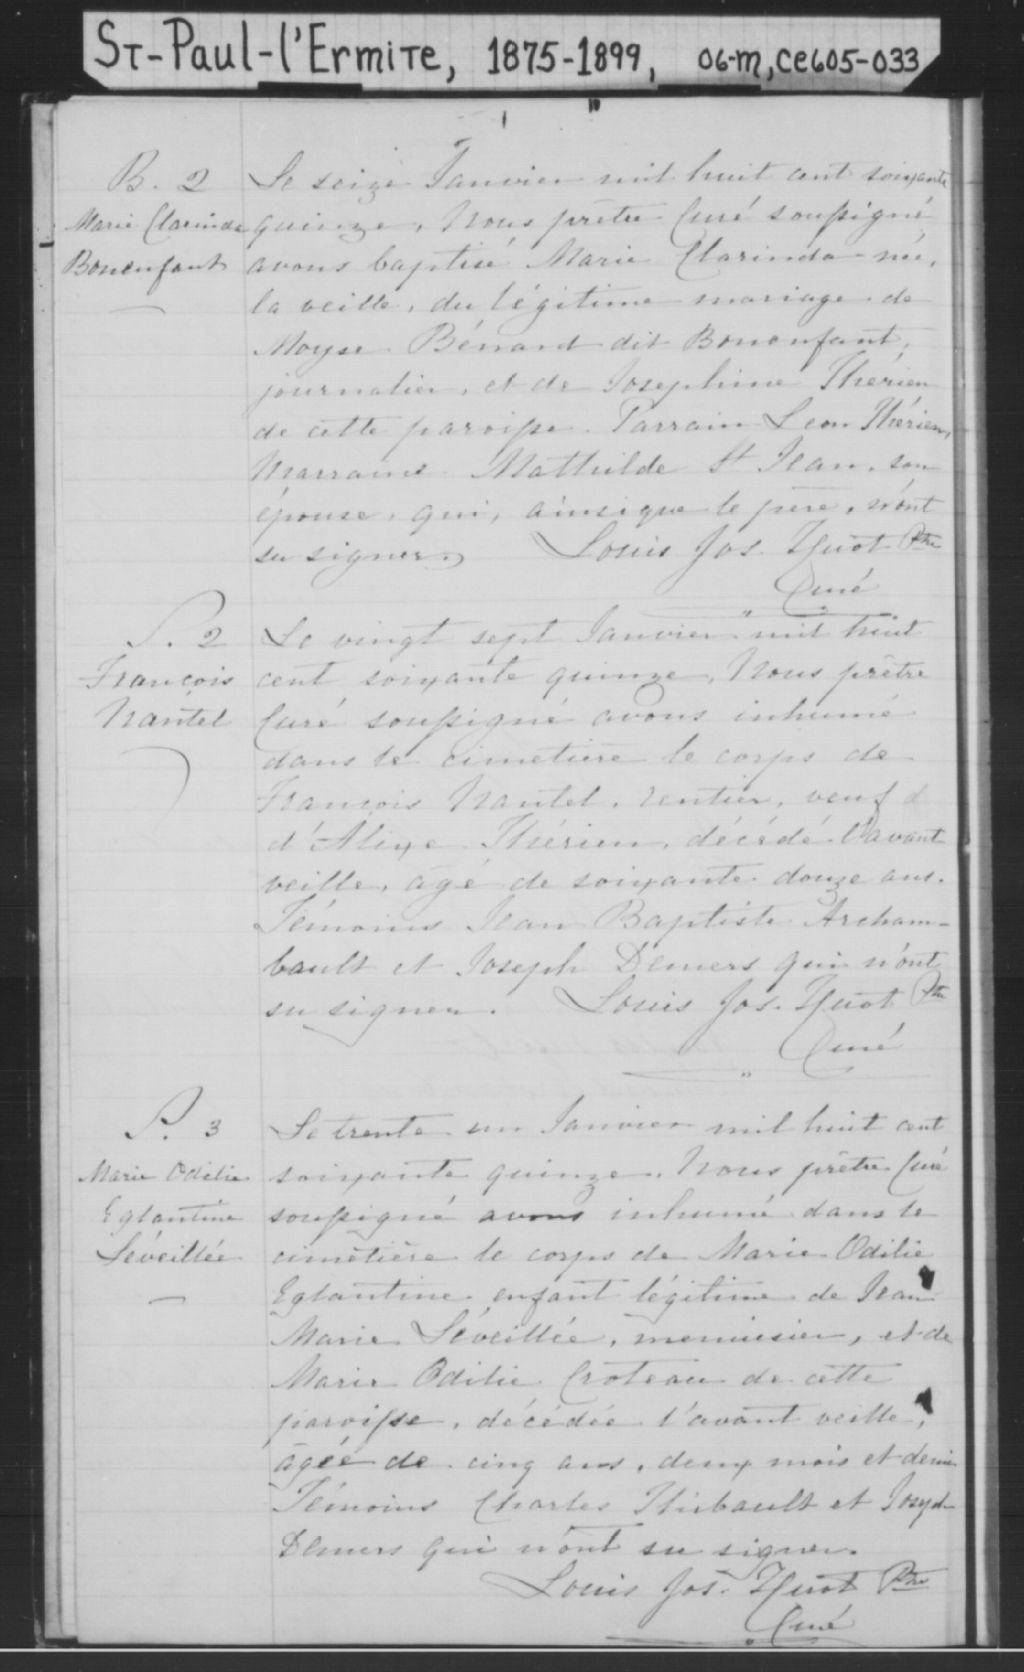 St-Paul-l'Ermite, 1875-1899, 06-M, CE605-033
B. 2
Marie Clarinda
Bonenfant
Le seize Janvier mil huit cent soixante
quinze, Nous prêtre Curé soussigné
avons baptisé Marie Clarinda née,
la veille, du légitime mariage de
Moyse Bénard dit Bonenfant,
journalier, et de Josephine Thérien
de cette paroisse. Parrain Leon Thérien,
Marraine Mathilde St Jean, son
épouse, qui, ainsi que le père, n'ont
su signer. Louis Jos. Huot Ptre
Curé
S. 2
François
Nantel
Le vingt sept Janvier mil huit
cent soixante quinze, Nous prêtre
Curé soussigné avons inhumé
dans le cimetière le corps de
François Nantel, rentier, veuf d
d'Alixe Thérien, décédé l'avant
veille, âgé de soixante douze ans.
Témoins Jean Baptiste Archam-
bault et Joseph Demers qui n'ont
su signer. Louis Jos. Huot Ptre
Curé
S. 3
Marie Odilie
Eglantine
Léveillée
Le trente un Janvier mil huit cent
soixante quinze, Nous prêtre Curé
soussigné avons inhumé dans le
cimetière le corps de Marie Odilie
Eglantine enfant légitime de Jean
Marie Léveillée, menuisier, et de
Marie Odilie Croteau de cette
paroisse, décédée l'avant veille,
âgée de cinq ans, deux mois et demi.
Témoins Charles Thibault et Joseph
Demers qui n'ont su signer.
Louis Jos. Huot Ptre
Curé